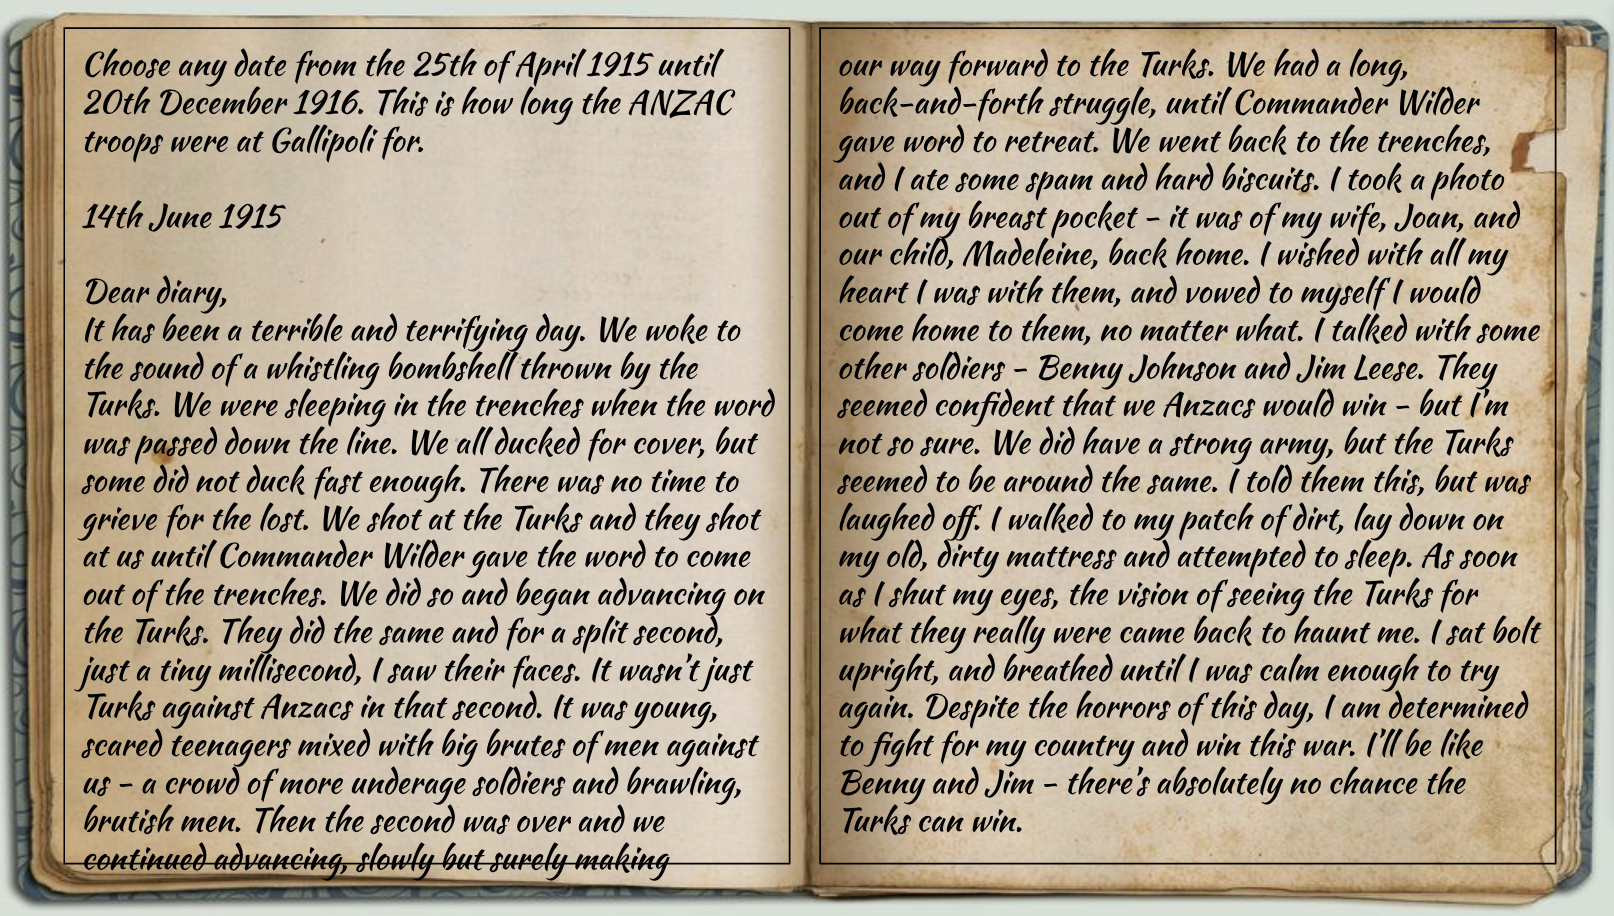 Choose any date from the 25th of April 1915 until
20th December 1916. This is how long the ANZAC
troops were at Gallipoli for.
14th June 1915
Dear diary,
It has been a terrible and terrifying day. We woke to
the sound of a whistling bombshell thrown by the
Turks. We were sleeping in the trenches when the word
was passed down the line. We all ducked for cover, but
some did not duck fast enough. There was no time to
grieve for the lost. We shot at the Turks and they shot
at us until Commander Wilder gave the word to come
out of the trenches. We did so and began advancing on
the Turks. They did the same and for a split second,
just a tiny millisecond, I saw their faces. It wasn't just
Turks against Anzacs in that second. It was young,
scared teenagers mixed with big brutes of men against
us - a crowd of more underage soldiers and brawling,
brutish men. Then the second was over and we
continued advancing, slowly but surely making
our way forward to the Turks. We had a long,
back-and-forth struggle, until Commander Wilder
gave word to retreat. We went back to the trenches,
and I ate some spam and hard biscuits. I took a photo
out of my breast pocket - it was of my wife, Joan, and
our child, Madeleine, back home. I wished with all my
heart I was with them, and vowed to myself I would
come home to them, no matter what. I talked with some
other soldiers - Benny Johnson and Jim Leese. They
seemed confident that we Anzacs would win - but I'm
not so sure. We did have a strong army, but the Turks
seemed to be around the same. I told them this, but was
laughed off. I walked to my patch of dirt, lay down on
my old, dirty mattress and attempted to sleep. As soon
as I shut my eyes, the vision of seeing the Turks for
what they really were came back to haunt me. I sat bolt
upright, and breathed until I was calm enough to try
again. Despite the horrors of this day, I am determined
to fight for my country and win this war. I'll be like
Benny and Jim - there's absolutely no chance the
Turks can win.